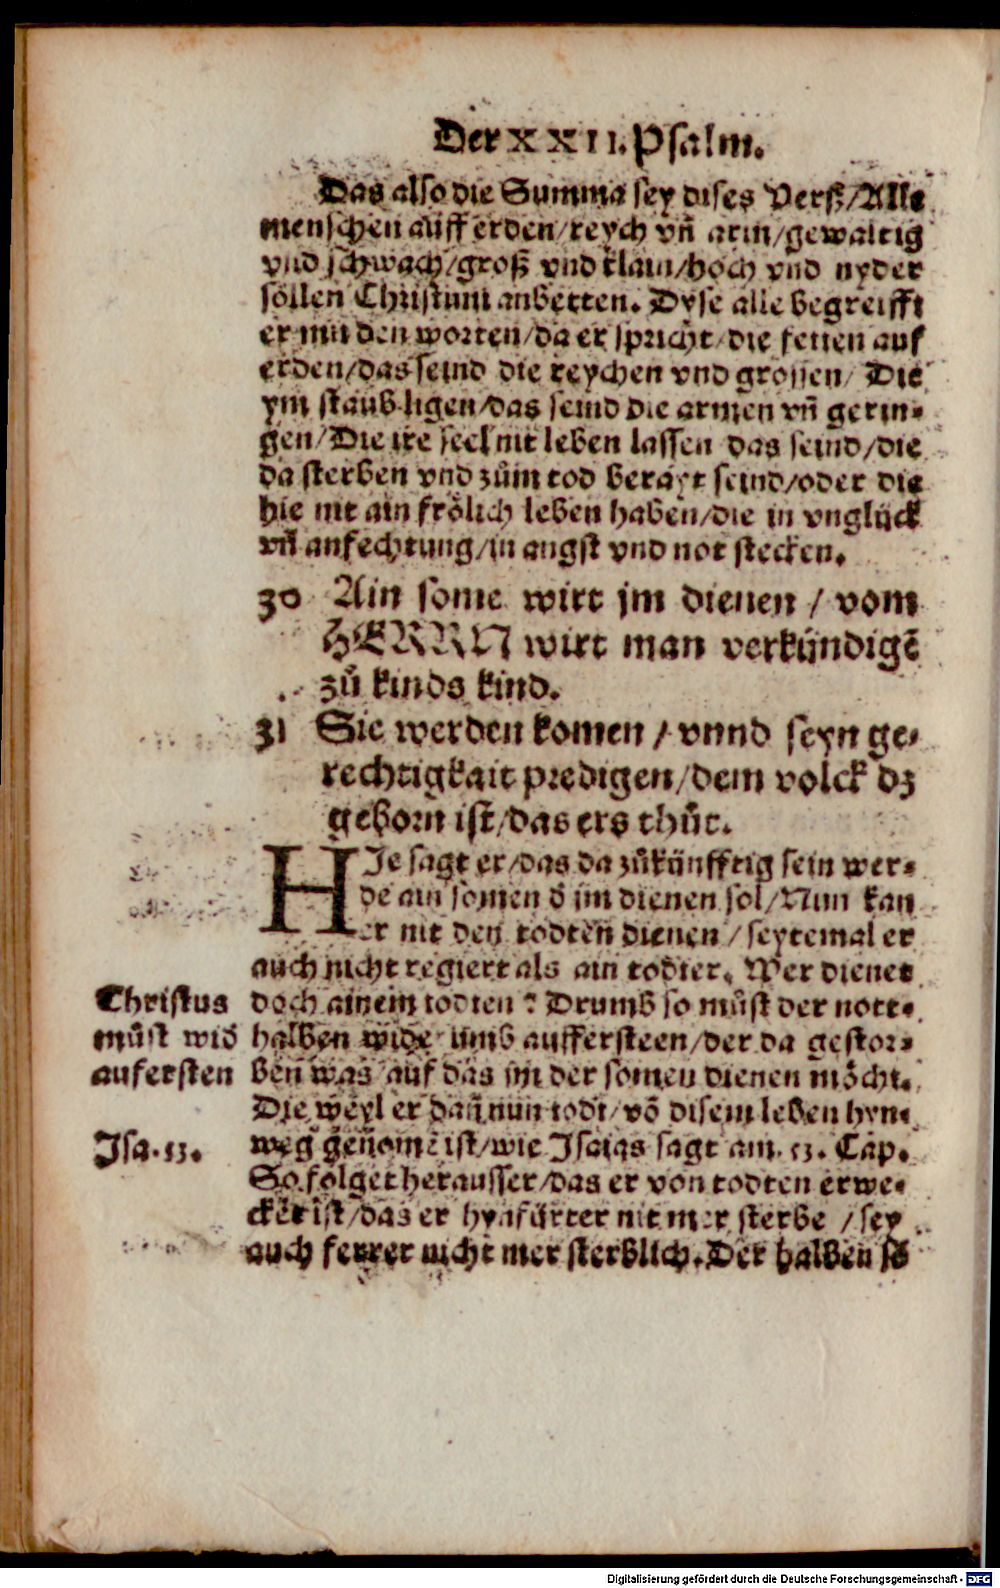 Der XXII. Psalm.
Das also die Summa sey dises Verß/Alle
menschen auff erden/reych vñ arm/gewaltig
vnd schwach/groß vnd klain/hoch vnd nyder
söllen Christum anbetten. Dyse alle begreifft
er mit den worten/da er spricht/die fetten auf
erden/das seind die reychen vnd grossen/ Die
ym staub ligen/das seind die armen vñ gerin-
gen/Die ire seel nit leben lassen das seind/die
da sterben vnd zům tod berayt seind/oder die
hie nit ain frölich leben haben/die in vnglück
vñ anfechtung/in angst vnd not stecken.
30 Ain some wirt jm dienen / vom
HERRN wirt man verkündigẽ
zů kinds kind.
31 Sie werden komen / vnnd seyn ge-
rechtigkait predigen/dem volck dz
geborn ist/das ers thůt.
HJe sagt er/das da zůkünfftig sein wer-
de ain somen d̕ im dienen sol/Nun kan
er nit den todten dienen / seytemal er
auch nicht regiert als ain todter. Wer dienet
Christus
můst wid̕
aufersten
doch ainem todten? Drumb so můst der nott-
halben widerumb aufferst een/der da gestor-
ben was auf das im der somen dienen möcht.
Die weyl er dañ nun todt/võ disem leben hyn-
Jsa. 53.
weg genomẽ ist/wie Jsaias sagt am. 53. Cap.
So folget herausser/das er von todten erwe-
cket ist/das er hynfürter nit mer sterbe / sey
auch ferrer nicht mer sterblich. Der halben so
Digitalisierung gefördert durch die Deutsche Forschungsgemeinschaft - DFG